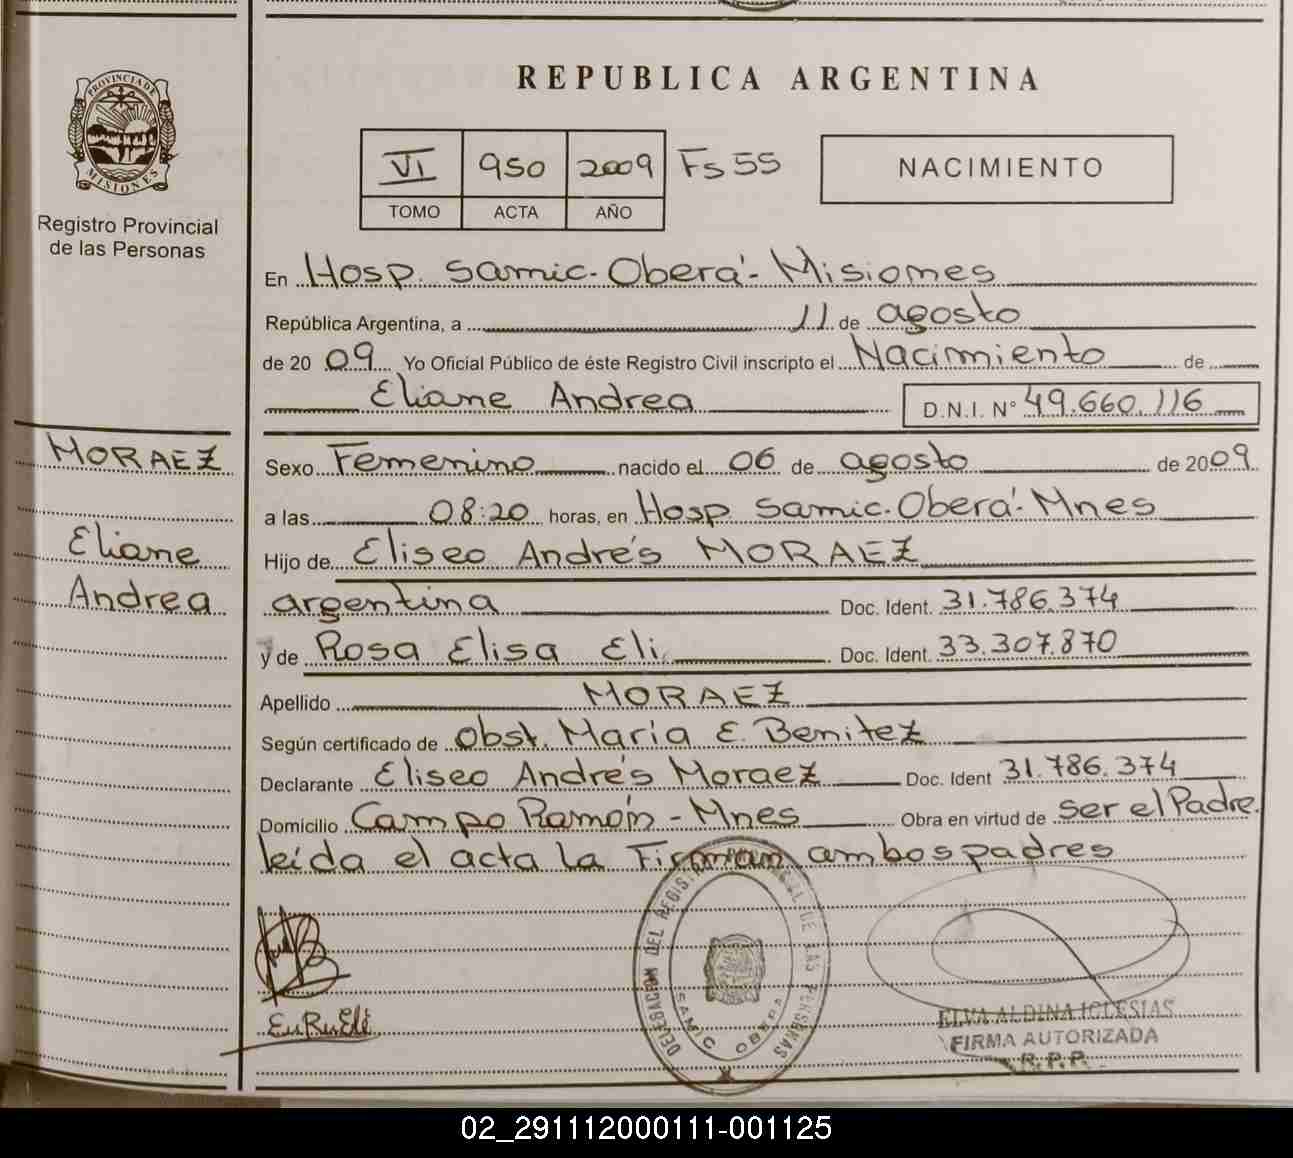 REPUBLICA ARGENTINA
PROVINCIA DE MISIONES
Registro Provincial
de las Personas
VI 950 2009 Fs 55
TOMO ACTA AÑO
NACIMIENTO
En Hosp. Samic-Oberá-Misiones
República Argentina, a 11 de agosto
de 20 09 Yo Oficial Público de éste Registro Civil inscripto el Nacimiento de
Eliane Andrea D.N.I. N° 49.660.116
MORAEZ
Eliane
Andrea
Sexo Femenino nacido el 06 de agosto de 2009
a las 08:20 horas, en Hosp Samic-Oberá-Mnes
Hijo de Eliseo Andrés MORAEZ
argentina Doc. Ident. 31.786.374
y de Rosa Elisa Eli Doc. Ident. 33.307.870
Apellido MORAEZ
Según certificado de Obst. María E. Benitez
Declarante Eliseo Andrés Moraez Doc. Ident 31.786.374
Domicilio Campo Ramón - Mnes Obra en virtud de ser el Padre.
leída el acta la Firman ambos padres
DELEGACION DEL REGISTRO DE LAS PERSONAS
SAMIC OBERA
ELVA ALDINA IGLESIAS
FIRMA AUTORIZADA
R.P.P.
02_291112000111-001125